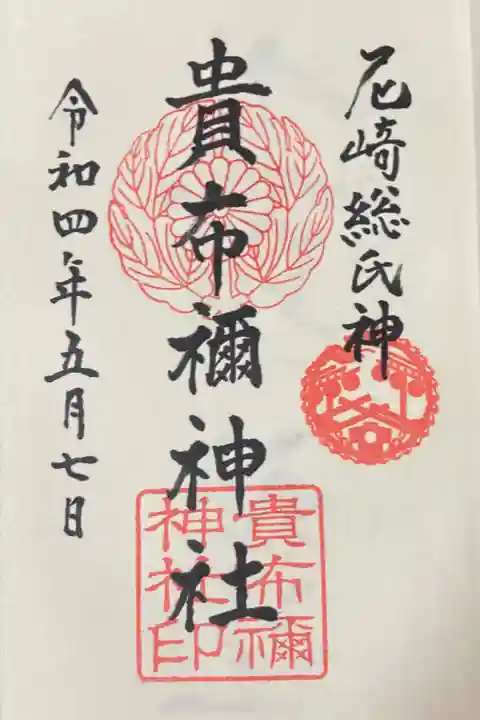 尼崎総氏神
貴布禰神社
貴布禰
神社印
令和四年五月七日